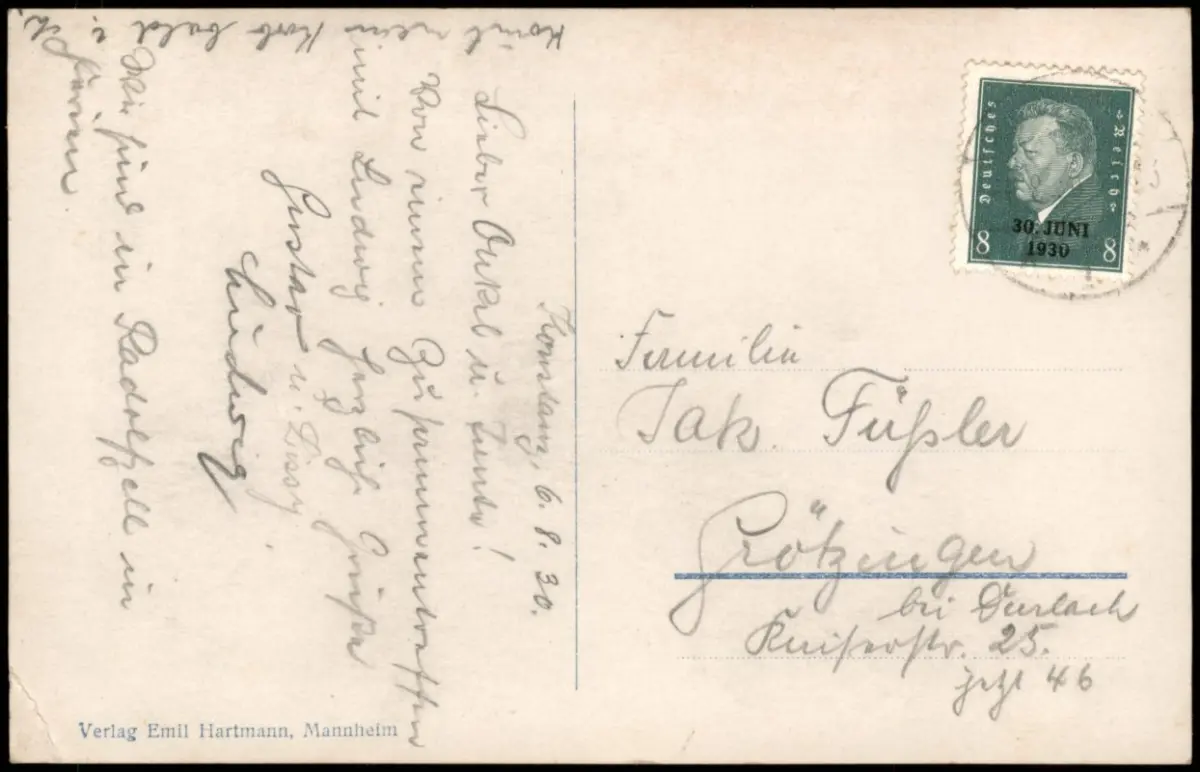 Konstanz, 6. 8. 30.
Lieber Onkel u. Tante!
Von einem Zusammentreffen
mit Ludwig herzliche Grüße
Gustav u. Lissy.
Ludwig
Wir sind in Radolfzell in
Ferien
Korb bald
Deutsches Reich
30. JUNI
1930
8 8
Familie
Jak. Füßler
Grötzingen
bei Durlach
Kaiserstr. 25.
jetzt 46
Verlag Emil Hartmann, Mannheim